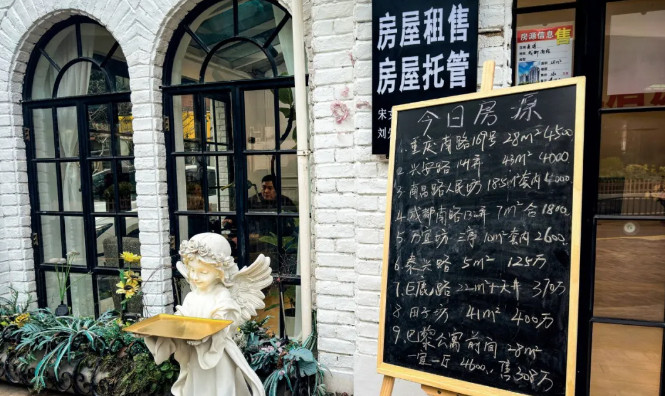 房屋租售
房屋托管
宋
刘
房源信息 售
今日房源
1. 重庆南路169号 28m² 4500
2. 兴安路 141弄 43m² 4000
3 南昌路人民坊 18.5m² 套内 4000
4. 成都南路132弄 7m² 合 1800
5. 万宜坊 三亭 10m² 套内 2600
6. 泰兴路 5m² 125万
7. 巨鹿路 22m²+大卉 370万
8 田子坊 41m² 400万
9. 巴黎公寓 前间 28m²
一室一厅 4600 售 308万